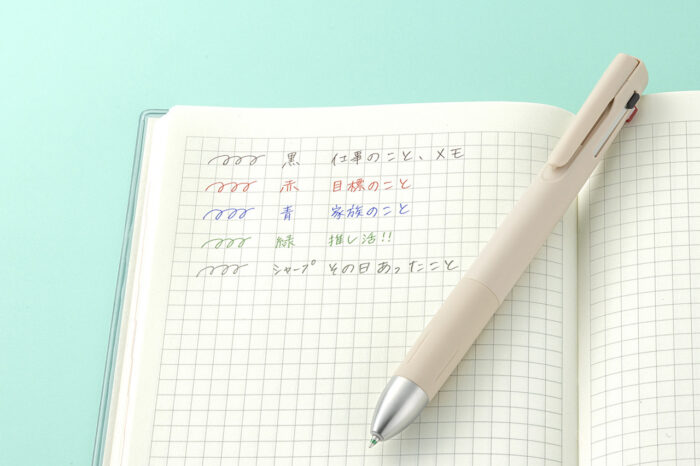 黒 仕事のこと、メモ
赤 目標のこと
青 家族のこと
緑 推し活!!
シャープ その日あったこと